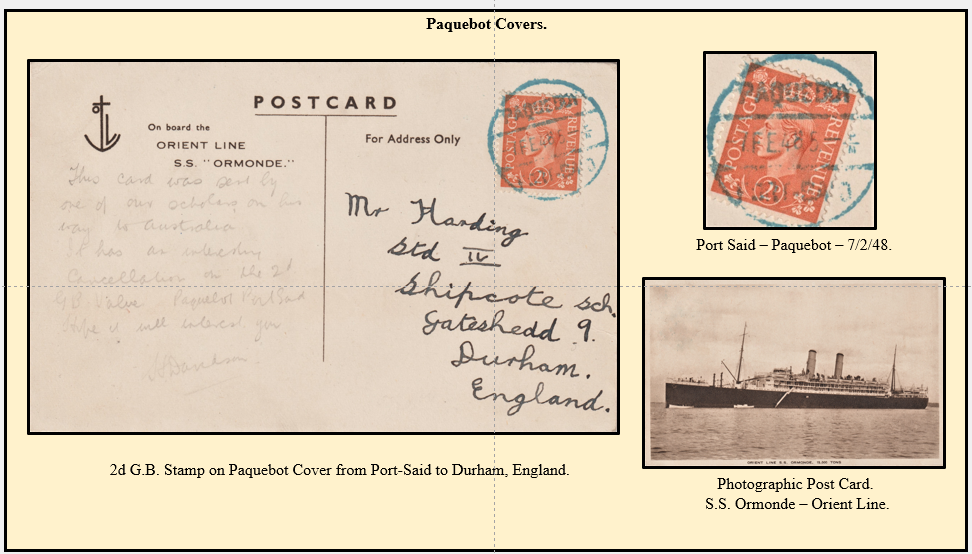 Paquebot Covers.
POSTCARD
On board the
ORIENT LINE
S.S. "ORMONDE."
For Address Only
This card was sent by
one of our scholars on his
way to Australia
It has an interesting
Cancellation on the 2d
G.B. Value - Paquebot Port Said
Hope it will interest you.
Davidson
Mr Harding
Std IV
Shipcote sch.
Gateshedd 9.
Durham.
England.
POSTAGE
REVENUE
2D
PAQUEBOT
POSTAGE
REVENUE
2D
PAQUEBOT
Port Said – Paquebot – 7/2/48.
ORIENT LINE S.S. ORMONDE,
TONS
Photographic Post Card.
S.S. Ormonde – Orient Line.
2d G.B. Stamp on Paquebot Cover from Port-Said to Durham, England.